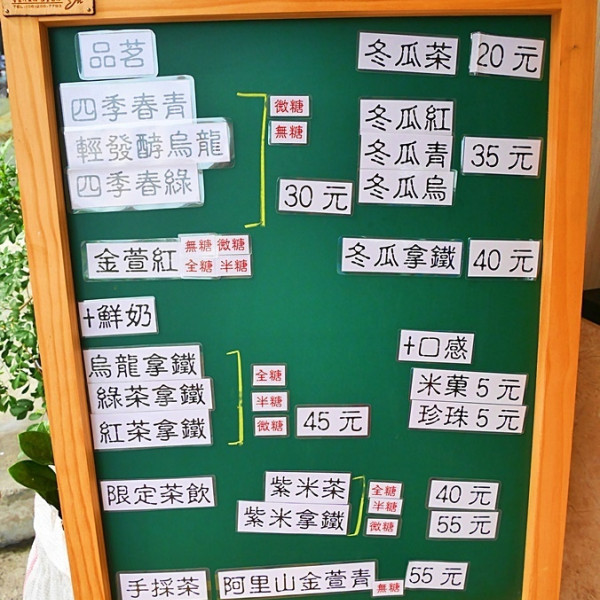 品茗
四季春青
輕發酵烏龍
四季春綠
微糖
無糖
30 元
金萱紅
無糖 微糖
全糖 半糖
+鮮奶
烏龍拿鐵
綠茶拿鐵
紅茶拿鐵
全糖
半糖
微糖
45 元
冬瓜茶 20 元
冬瓜紅
冬瓜青
冬瓜烏
35 元
冬瓜拿鐵 40 元
+口感
米菓 5 元
珍珠 5 元
限定茶飲
紫米茶
紫米拿鐵
全糖
半糖
微糖
40 元
55 元
手採茶 阿里山金萱青 無糖 55 元